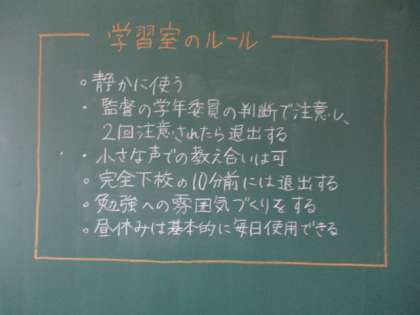 学習室のルール
○静かに使う
・監督の学年委員の判断で注意し、
２回注意されたら退出する
・小さな声での教え合いは可
○完全下校の10分前には退出する
○勉強への雰囲気づくりをする
○昼休みは基本的に毎日使用できる